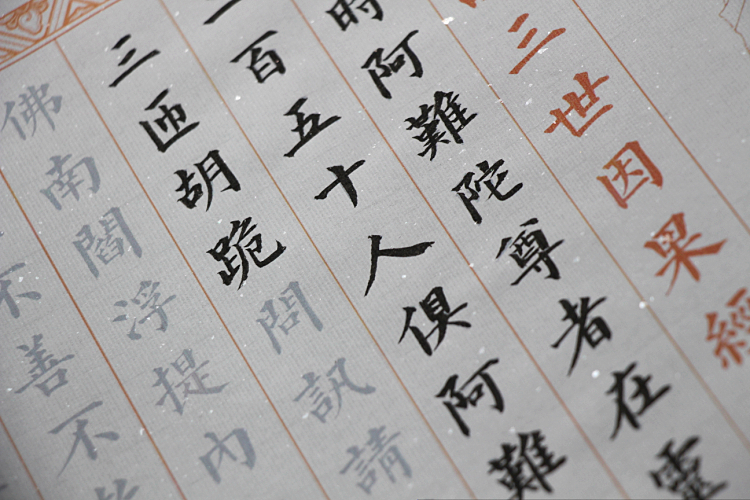 三世因果經
時阿難陀尊者在靈
百五十人俱阿難
三匝胡跪問訊請
佛南閻浮提內
不善不